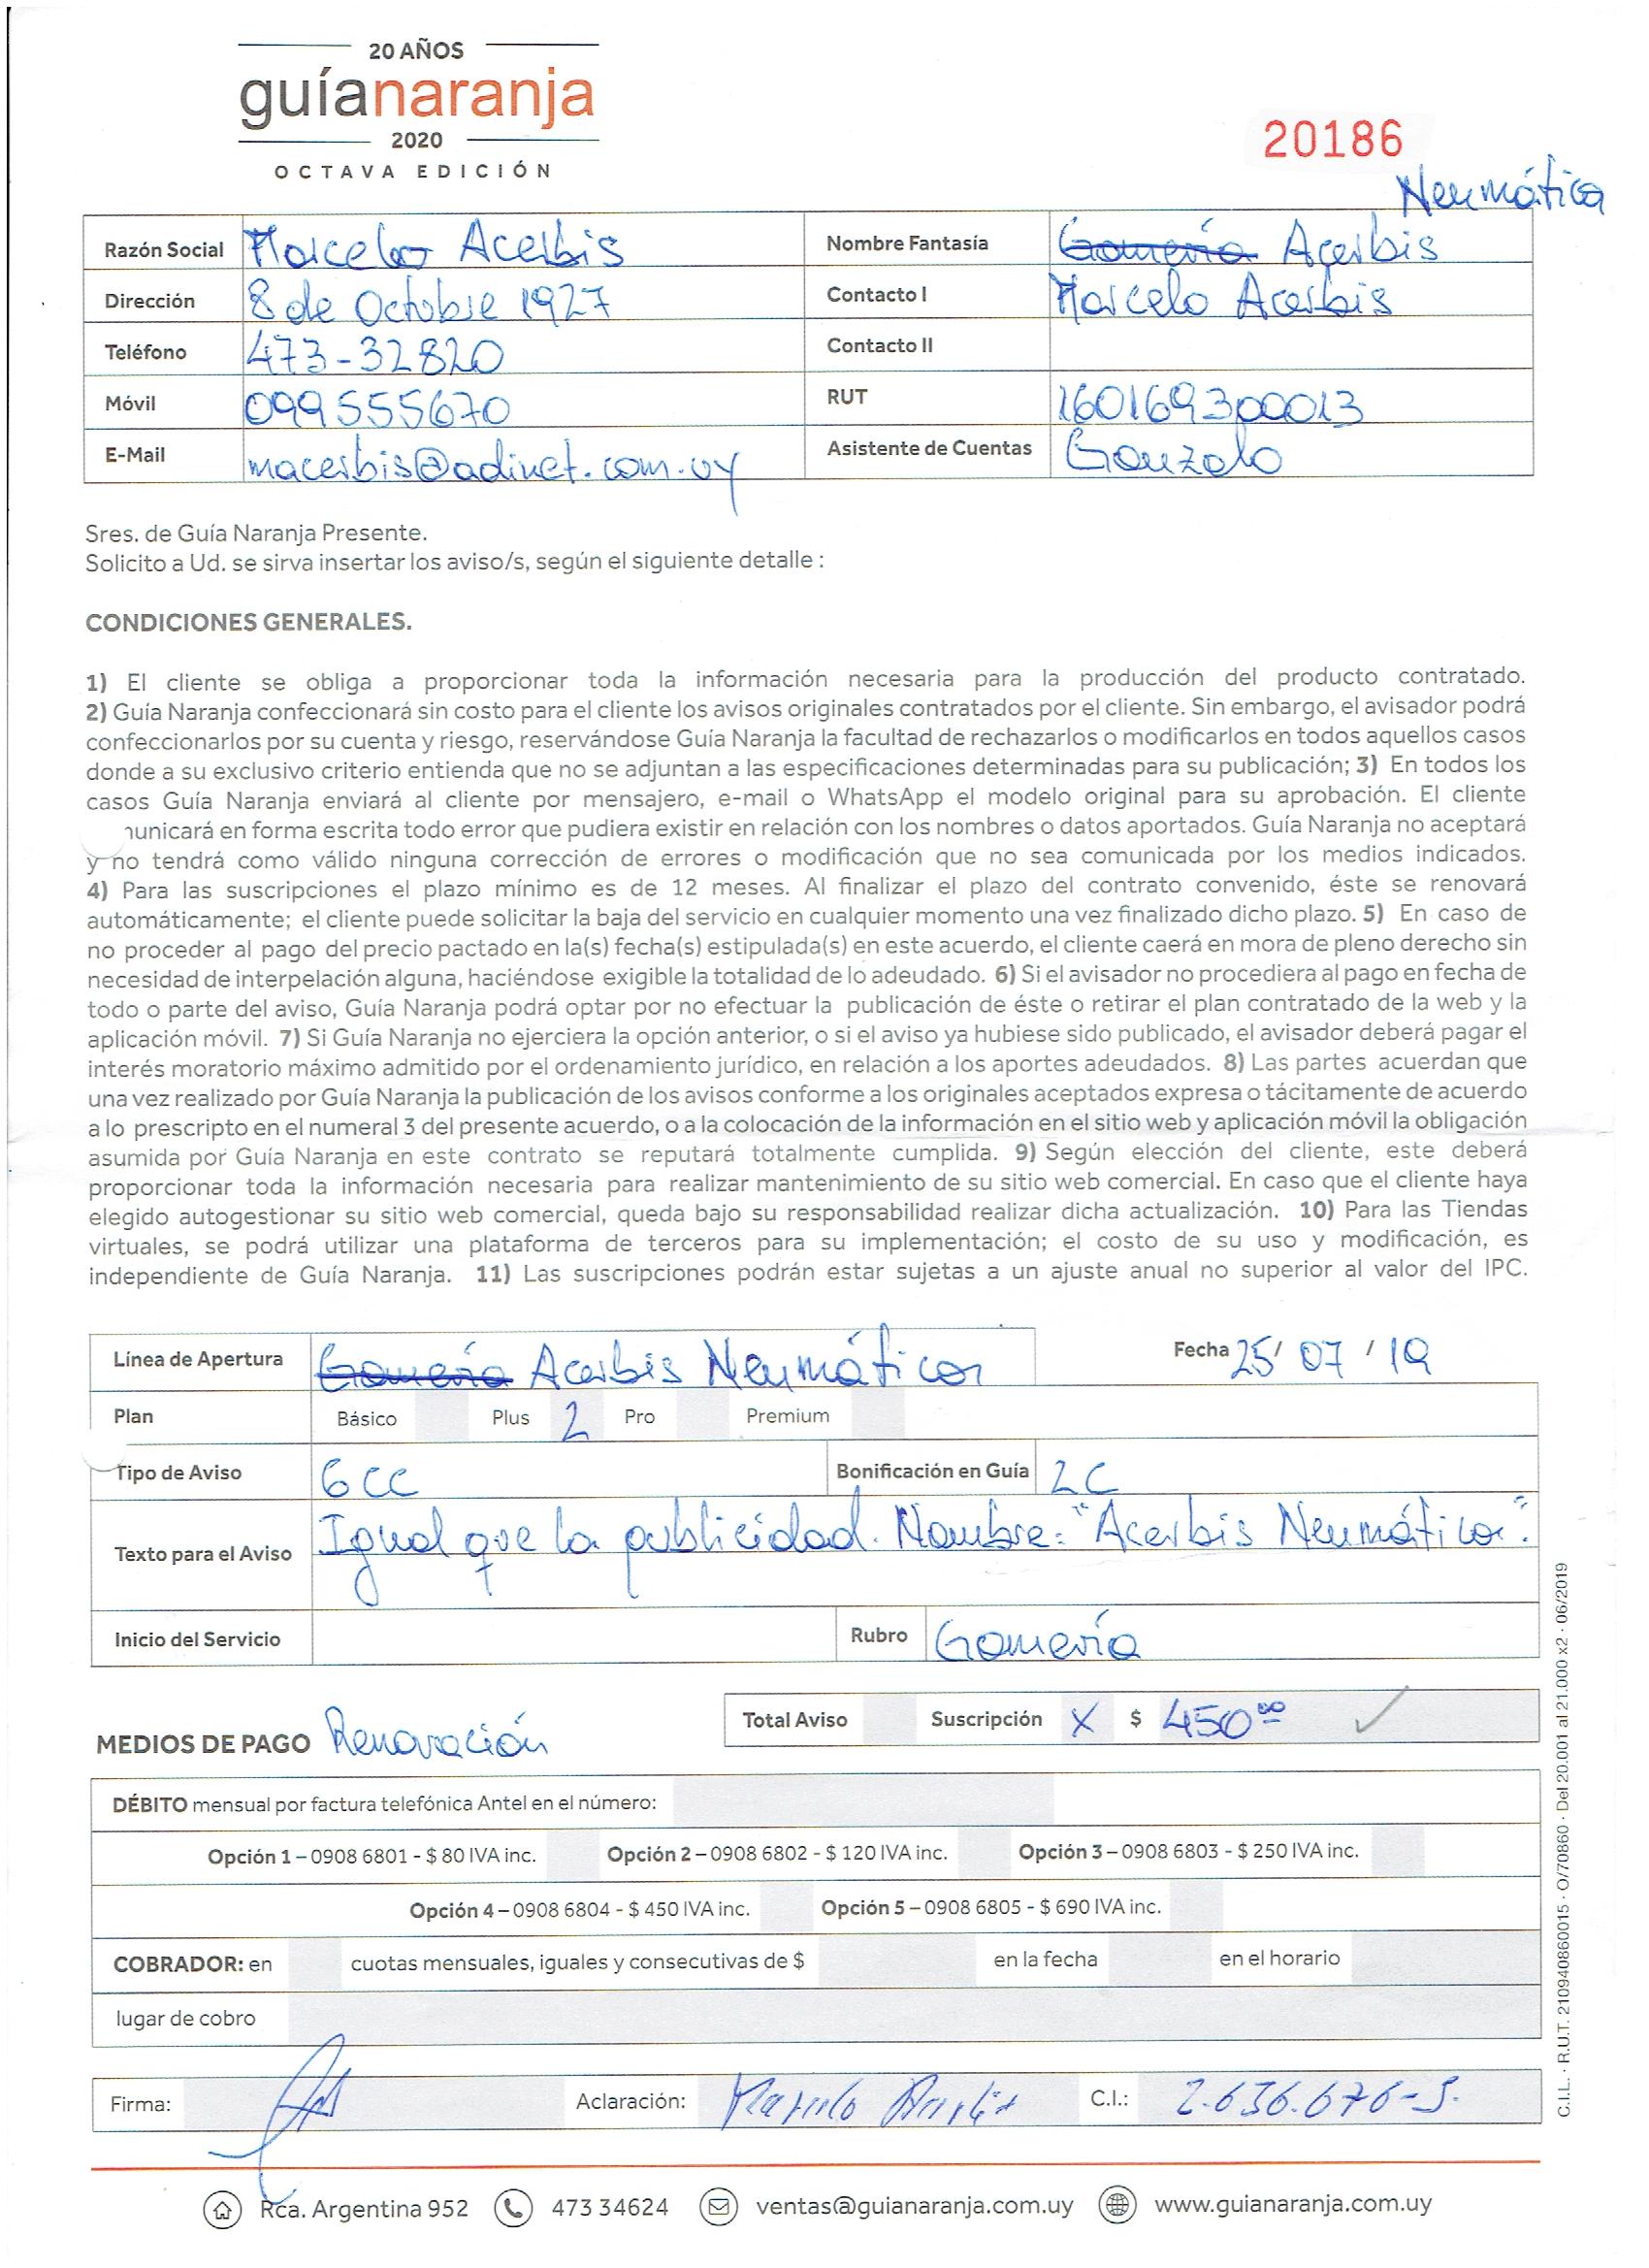 20 AÑOS
guíanaranja
2020
OCTAVA EDICIÓN
20186
Neumática
Razón Social Marcelo Acerbis Nombre Fantasía Gomería Acerbis
Dirección 8 de Octubre 1927 Contacto I Marcelo Acerbis
Teléfono 473-32820 Contacto II
Móvil 099555670 RUT 160169300013
E-Mail macerbis@adinet.com.uy Asistente de Cuentas Gonzalo
Sres. de Guía Naranja Presente.
Solicito a Ud. se sirva insertar los aviso/s, según el siguiente detalle :
CONDICIONES GENERALES.
1) El cliente se obliga a proporcionar toda la información necesaria para la producción del producto contratado.
2) Guía Naranja confeccionará sin costo para el cliente los avisos originales contratados por el cliente. Sin embargo, el avisador podrá
confeccionarlos por su cuenta y riesgo, reservándose Guía Naranja la facultad de rechazarlos o modificarlos en todos aquellos casos
donde a su exclusivo criterio entienda que no se adjuntan a las especificaciones determinadas para su publicación; 3) En todos los
casos Guía Naranja enviará al cliente por mensajero, e-mail o WhatsApp el modelo original para su aprobación. El cliente
municará en forma escrita todo error que pudiera existir en relación con los nombres o datos aportados. Guía Naranja no aceptará
y no tendrá como válido ninguna corrección de errores o modificación que no sea comunicada por los medios indicados.
4) Para las suscripciones el plazo mínimo es de 12 meses. Al finalizar el plazo del contrato convenido, éste se renovará
automáticamente; el cliente puede solicitar la baja del servicio en cualquier momento una vez finalizado dicho plazo. 5) En caso de
no proceder al pago del precio pactado en la(s) fecha(s) estipulada(s) en este acuerdo, el cliente caerá en mora de pleno derecho sin
necesidad de interpelación alguna, haciéndose exigible la totalidad de lo adeudado. 6) Si el avisador no procediera al pago en fecha de
todo o parte del aviso, Guía Naranja podrá optar por no efectuar la publicación de éste o retirar el plan contratado de la web y la
aplicación móvil. 7) Si Guía Naranja no ejerciera la opción anterior, o si el aviso ya hubiese sido publicado, el avisador deberá pagar el
interés moratorio máximo admitido por el ordenamiento jurídico, en relación a los aportes adeudados. 8) Las partes acuerdan que
una vez realizado por Guía Naranja la publicación de los avisos conforme a los originales aceptados expresa o tácitamente de acuerdo
a lo prescripto en el numeral 3 del presente acuerdo, o a la colocación de la información en el sitio web y aplicación móvil la obligación
asumida por Guía Naranja en este contrato se reputará totalmente cumplida. 9) Según elección del cliente, este deberá
proporcionar toda la información necesaria para realizar mantenimiento de su sitio web comercial. En caso que el cliente haya
elegido autogestionar su sitio web comercial, queda bajo su responsabilidad realizar dicha actualización. 10) Para las Tiendas
virtuales, se podrá utilizar una plataforma de terceros para su implementación; el costo de su uso y modificación, es
independiente de Guía Naranja. 11) Las suscripciones podrán estar sujetas a un ajuste anual no superior al valor del IPC.
Línea de Apertura Gomería Acerbis Neumáticos Fecha 25/ 07 / 19
Plan Básico Plus 2 Pro Premium
Tipo de Aviso 6CC Bonificación en Guía 2C
Texto para el Aviso Igual que la publicidad. Nombre: "Acerbis Neumáticos".
Inicio del Servicio Rubro Gomería
Total Aviso Suscripción X $ 450⁰⁰ ✓
MEDIOS DE PAGO Renovación
DÉBITO mensual por factura telefónica Antel en el número:
Opción 1 – 0908 6801 - $ 80 IVA inc. Opción 2 – 0908 6802 - $ 120 IVA inc. Opción 3 – 0908 6803 - $ 250 IVA inc.
Opción 4 – 0908 6804 - $ 450 IVA inc. Opción 5 – 0908 6805 - $ 690 IVA inc.
COBRADOR: en cuotas mensuales, iguales y consecutivas de $ en la fecha en el horario
lugar de cobro
Firma: Aclaración: Marcelo Acerbis C.I.: 2.636.676-5.
C.I.L. · R.U.T. 210940860015 · O/70860 · Del 20.001 al 21.000 x2 · 06/2019
Rca. Argentina 952 473 34624 ventas@guianaranja.com.uy www.guianaranja.com.uy